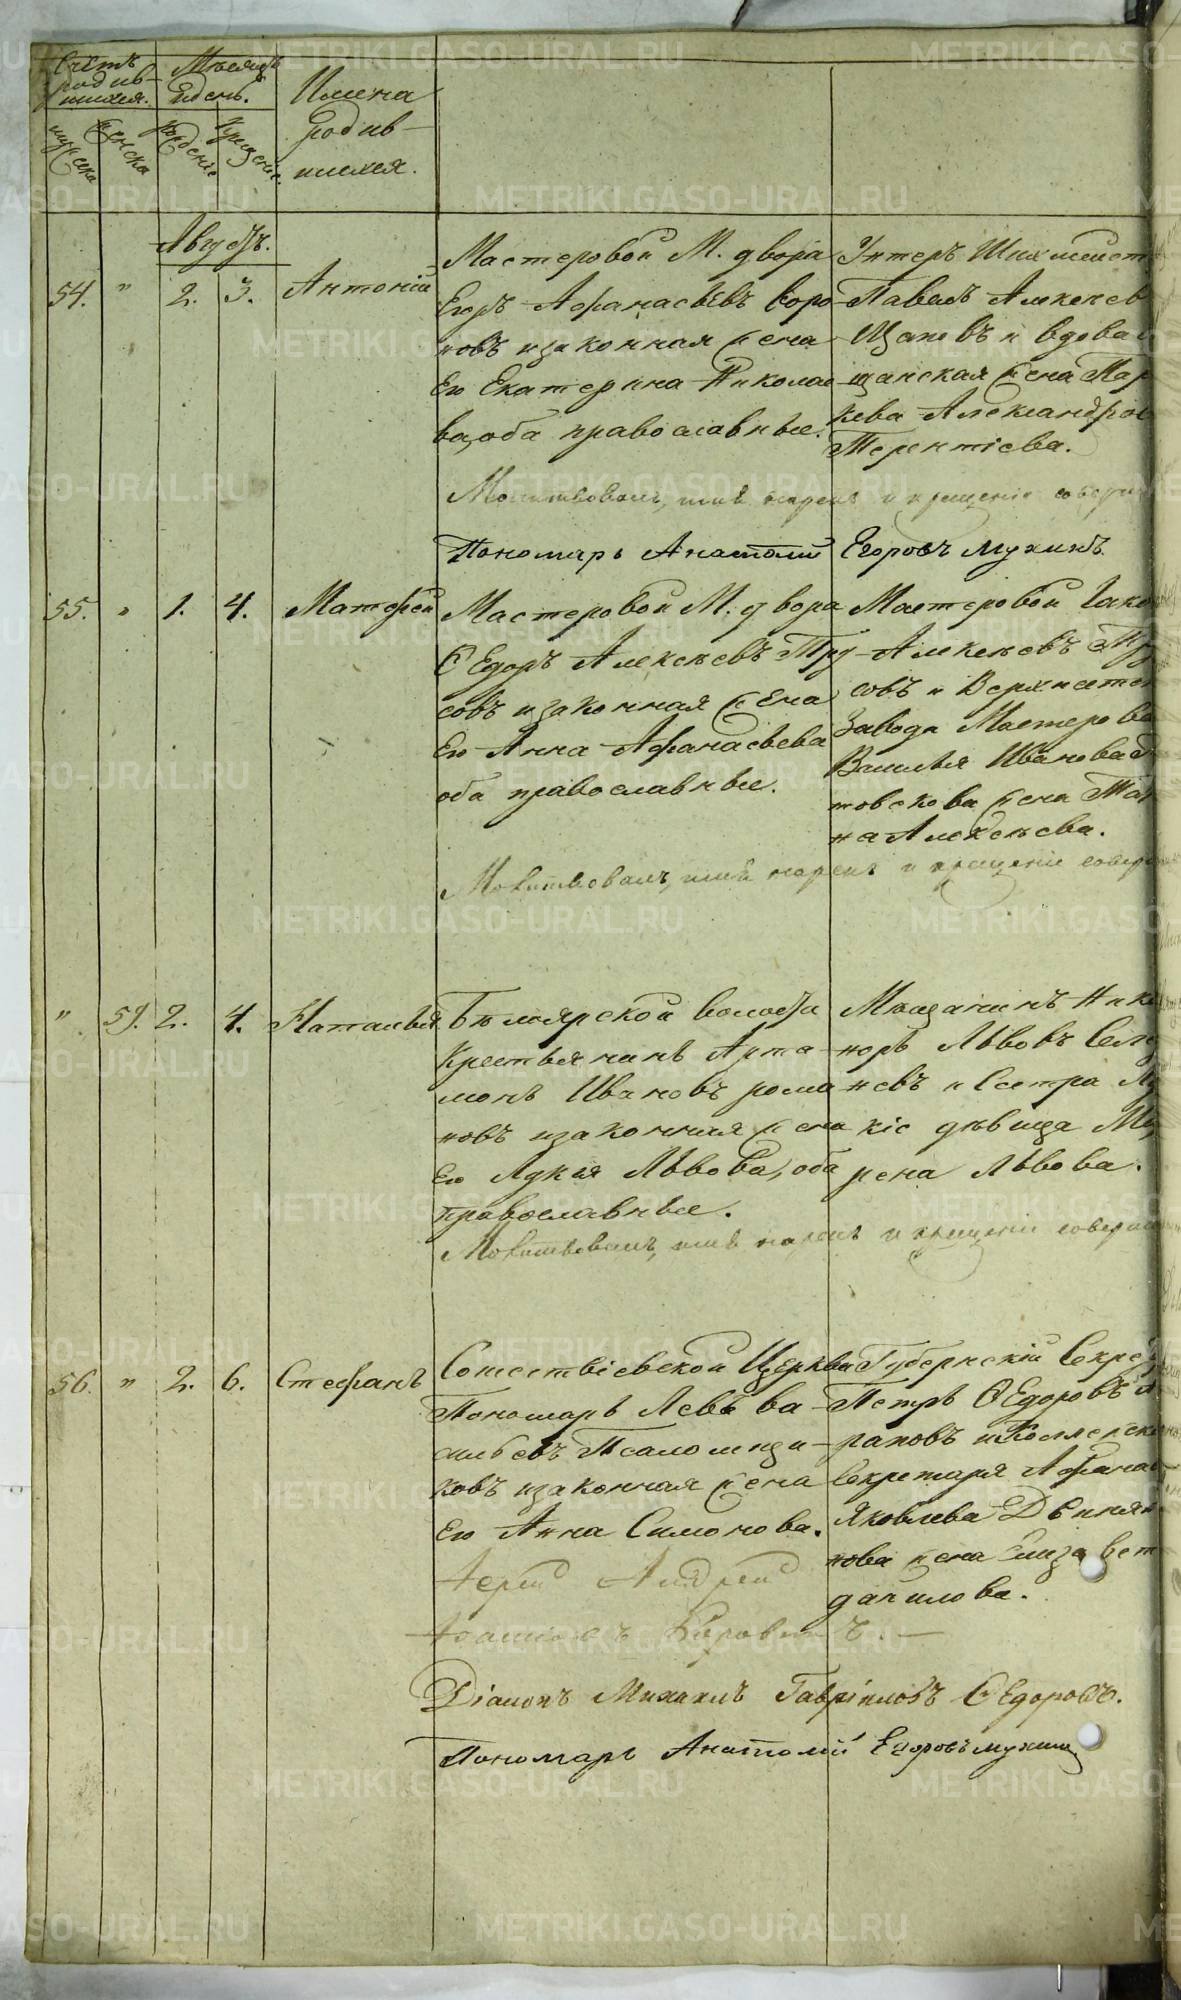 Счетъ
родив-
шихся.
Мѣсяцъ
и день.
Имена
родив-
шихся.
мужеска
женска
рожденіе
крещеніе.
Августъ.
54. " 2. 3. Антоній
Мастеровой М. двора
Егоръ Афанасьевъ Соро-
ковъ и законная жена
Его Екатерина Николае-
ва, оба православные.
Унтеръ Шихмейст
Павелъ Алексѣев
Щаповъ и вдова
щанская жена Пар
кева Александров
Терентіева.
Молитвовалъ, имя нарекъ и крещеніе соверш
Пономарь Анатолій Егоровъ Мухинъ.
55. " 1. 4. Матфей
Мастеровой М. двора
Ѳедоръ Алексѣевъ Тру-
совъ и законная жена
Его Анна Афанасьева
оба православные.
Мастеровой Іако
Алексѣевъ Тру
совъ и Верхъисетск
завода Мастерова
Василья Иванова
товскова жена Тат
на Алексѣева.
Молитвовалъ, имя нарекъ и крещеніе соверш
" 59. 2. 4. Наталья
Бѣлоярской волости
Крестьянинъ Арта-
монъ Ивановъ рома-
новъ и законная жена
Его Лукія Львова, оба
православные.
Мѣщанинъ Ника
норъ Львовъ Селе
невъ и Сестра Лу
кіи дѣвица Ма
рена Львова.
Молитвовалъ, имя нарекъ и крещеніе соверши
56. " 2. 6. Стефанъ
Сошествіевской Церкви
Пономарь Левъ Ва-
сильевъ Псаломщи-
ковъ и законная жена
Его Анна Симонова.
Губернскій Секре
Петръ Ѳедоровъ
рановъ и Коллежск
Секретаря Афана
Яковлева
нова жена Елизавет
данилова.
Іерей Андрей
Діаконъ Михаилъ Гавріиловъ Ѳедоровъ.
Пономарь Анатолій Егоровъ Мухинъ
METRIKI.GASO-URAL.RU